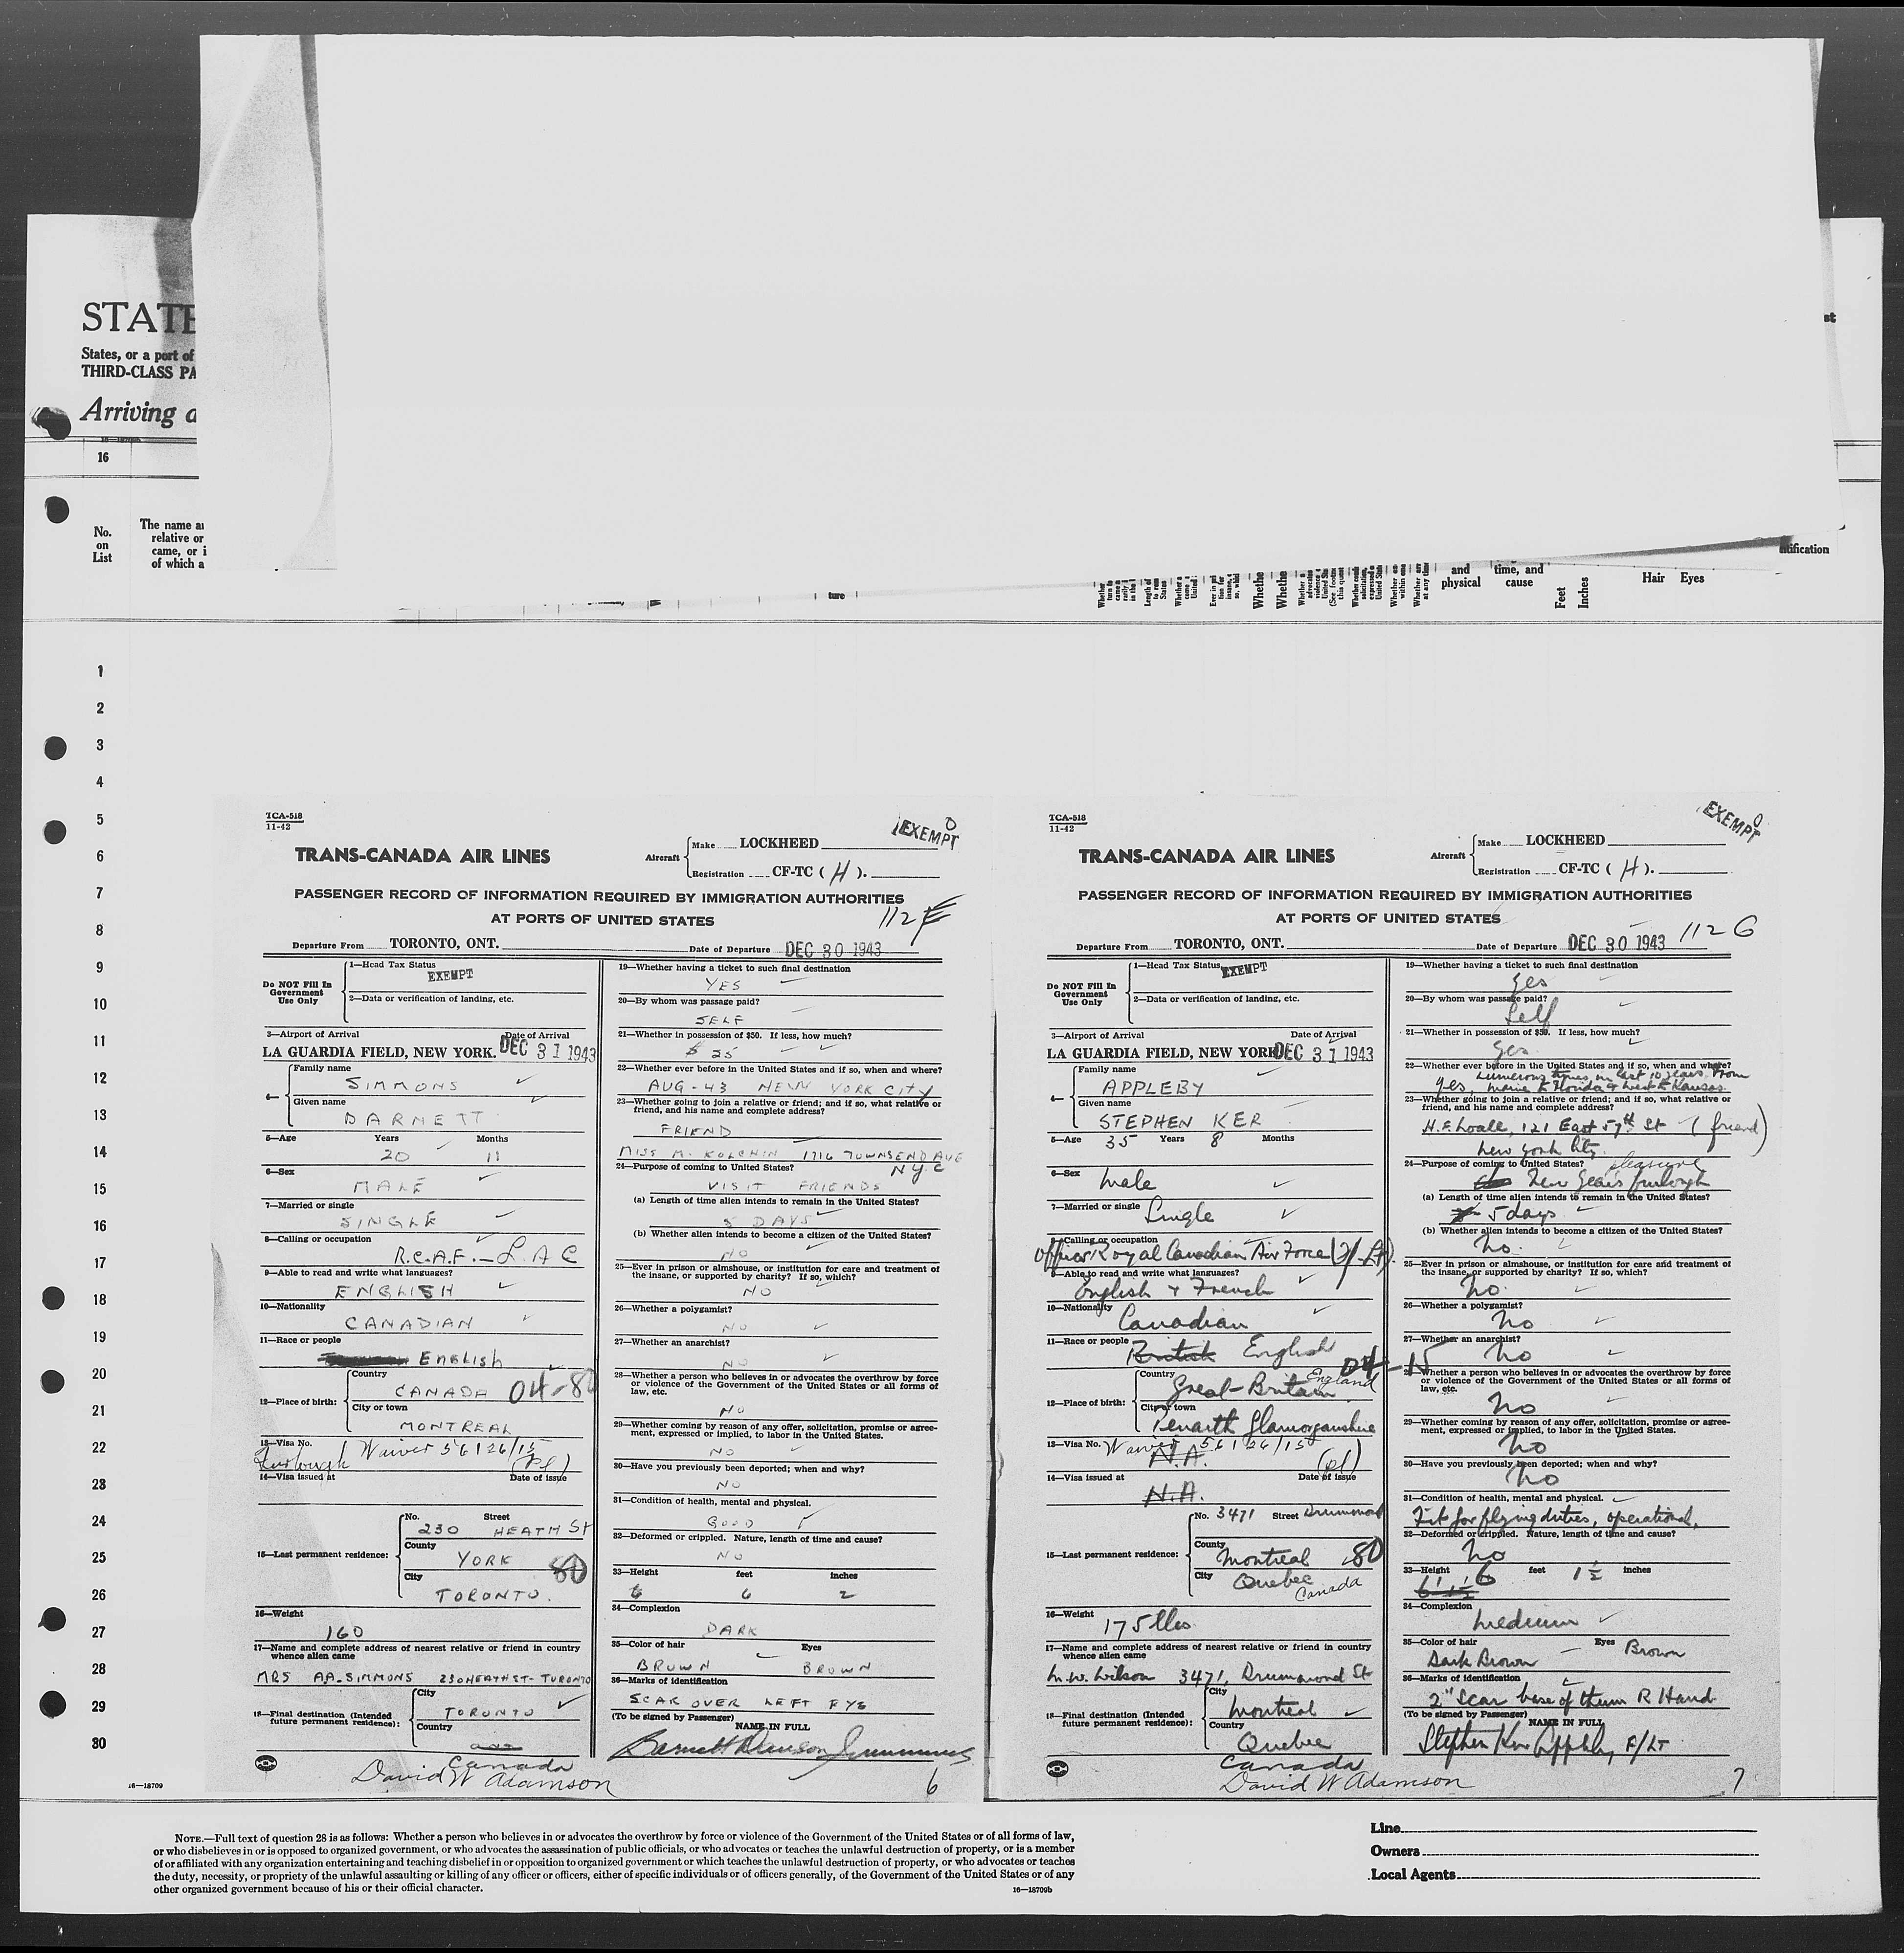 STATE
States, or a port of
THIRD-CLASS PA
Arriving a
16
No.
on
List
The name
relative or
came, or i
of which a
ture
and
physical
time, and
cause
Feet
Inches
Hair Eyes
1
2
3
4
5
6
7
8
9
10
11
12
13
14
15
16
17
18
19
20
21
22
28
24
25
26
27
28
29
30
TCA-518
11-42
EXEMPT 0
TRANS-CANADA AIR LINES
Aircraft
Make LOCKHEED
Registration CF-TC (H).
PASSENGER RECORD OF INFORMATION REQUIRED BY IMMIGRATION AUTHORITIES
AT PORTS OF UNITED STATES
112 F
Departure From TORONTO, ONT. Date of Departure DEC 30 1943
Do NOT Fill In
Government
Use Only
1—Head Tax Status
EXEMPT
2—Data or verification of landing, etc.
3—Airport of Arrival Date of Arrival
LA GUARDIA FIELD, NEW YORK. DEC 31 1943
4—
Family name
SIMMONS
Given name
BARNETT
5—Age Years Months
20 11
6—Sex
MALE
7—Married or single
SINGLE
8—Calling or occupation
R.C.A.F. — L.A.C
9—Able to read and write what languages?
ENGLISH
10—Nationality
CANADIAN
11—Race or people
English
12—Place of birth:
Country
CANADA 04-80
City or town
MONTREAL
13—Visa No.
Furlough Waiver 56126/15
(Pl)
14—Visa issued at Date of issue
15—Last permanent residence:
No. Street
230 HEATH St
County
YORK 80
City
TORONTO.
16—Weight
160
17—Name and complete address of nearest relative or friend in country
whence alien came
MRS AA. SIMMONS 230 HEATH ST - TORONTO
18—Final destination (Intended
future permanent residence):
City
TORONTO
Country
Canada
David W Adamson
19—Whether having a ticket to such final destination
YES
20—By whom was passage paid?
SELF
21—Whether in possession of $50. If less, how much?
$ 25
22—Whether ever before in the United States and if so, when and where?
AUG-43 NEW YORK CITY
23—Whether going to join a relative or friend; and if so, what relative or
friend, and his name and complete address?
FRIEND
MISS M. KOLCHIN 1716 TOWNSEND AVE
N.Y.C
24—Purpose of coming to United States?
VISIT FRIENDS
(a) Length of time alien intends to remain in the United States?
5 DAYS
(b) Whether alien intends to become a citizen of the United States?
NO
25—Ever in prison or almshouse, or institution for care and treatment of
the insane, or supported by charity? If so, which?
NO
26—Whether a polygamist?
NO
27—Whether an anarchist?
NO
28—Whether a person who believes in or advocates the overthrow by force
or violence of the Government of the United States or all forms of
law, etc.
NO
29—Whether coming by reason of any offer, solicitation, promise or agree-
ment, expressed or implied, to labor in the United States.
NO
30—Have you previously been deported; when and why?
NO
31—Condition of health, mental and physical.
GOOD
32—Deformed or crippled. Nature, length of time and cause?
NO
33—Height feet inches
6 2
34—Complexion
DARK
35—Color of hair Eyes
BROWN BROWN
36—Marks of identification
SCAR OVER LEFT EYE
(To be signed by Passenger)
NAME IN FULL
Barnett Danson Simmons
6
TCA-518
11-42
EXEMPT 0
TRANS-CANADA AIR LINES
Aircraft
Make LOCKHEED
Registration CF-TC (H).
PASSENGER RECORD OF INFORMATION REQUIRED BY IMMIGRATION AUTHORITIES
AT PORTS OF UNITED STATES
112 G
Departure From TORONTO, ONT. Date of Departure DEC 30 1943
Do NOT Fill In
Government
Use Only
1—Head Tax Status
EXEMPT
2—Data or verification of landing, etc.
3—Airport of Arrival Date of Arrival
LA GUARDIA FIELD, NEW YORK DEC 31 1943
4—
Family name
APPLEBY
Given name
STEPHEN KER
5—Age 35 Years 8 Months
6—Sex
Male
7—Married or single
Single
8—Calling or occupation
Officer Royal Canadian Air Force (F/Lt).
9—Able to read and write what languages?
English & French
10—Nationality
Canadian
11—Race or people
British English
04-15
12—Place of birth:
Country England
Great-Britain
City or town
Penarth Glamorganshire
13—Visa No. Waiver 56126/15
N.A. (pl)
14—Visa issued at Date of issue
N.A.
15—Last permanent residence:
No. 3471 Street Drummond
County
Montreal 80
City Quebec
Canada
16—Weight
175 lbs
17—Name and complete address of nearest relative or friend in country
whence alien came
M.W. Wilson 3471, Drummond St
18—Final destination (Intended
future permanent residence):
City
Montreal
Country
Quebec
Canada
David W Adamson
19—Whether having a ticket to such final destination
Yes
20—By whom was passage paid?
Self
21—Whether in possession of $50. If less, how much?
Yes
22—Whether ever before in the United States and if so, when and where?
Yes, Numerous times in last 10 years from
Maine to Florida & west to Kansas.
23—Whether going to join a relative or friend; and if so, what relative or
friend, and his name and complete address?
121 East 57th St (friend)
New York City.
24—Purpose of coming to United States? pleasure
New Year's furlough
(a) Length of time alien intends to remain in the United States?
5 days
(b) Whether alien intends to become a citizen of the United States?
No.
25—Ever in prison or almshouse, or institution for care and treatment of
the insane, or supported by charity? If so, which?
No.
26—Whether a polygamist?
No
27—Whether an anarchist?
No
28—Whether a person who believes in or advocates the overthrow by force
or violence of the Government of the United States or all forms of
law, etc.
No
29—Whether coming by reason of any offer, solicitation, promise or agree-
ment, expressed or implied, to labor in the United States.
No
30—Have you previously been deported; when and why?
No
31—Condition of health, mental and physical.
Fit for flying duties, operational.
32—Deformed or crippled. Nature, length of time and cause?
No
33—Height 6 feet 1½ inches
6' 1½
34—Complexion
Medium
35—Color of hair Eyes Brown
Dark Brown
36—Marks of identification
2" Scar base of thum R Hand
(To be signed by Passenger)
NAME IN FULL
Stephen Ker Appleby F/LT
7
16—18709
NOTE.—Full text of question 28 is as follows: Whether a person who believes in or advocates the overthrow by force or violence of the Government of the United States or of all forms of law,
or who disbelieves in or is opposed to organized government, or who advocates the assassination of public officials, or who advocates or teaches the unlawful destruction of property, or is a member
of or affiliated with any organization entertaining and teaching disbelief in or opposition to organized government or which teaches the unlawful destruction of property, or who advocates or teaches
the duty, necessity, or propriety of the unlawful assaulting or killing of any officer or officers, either of specific individuals or of officers generally, of the Government of the United States or of any
other organized government because of his or their official character.
16—18709b
Line
Owners
Local Agents